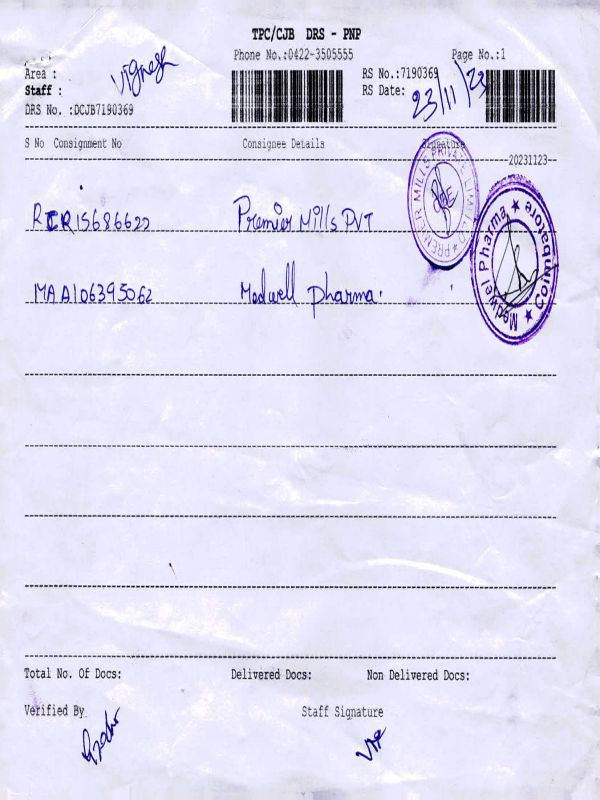 TPC/CJB DRS - PNP
Phone No.:0422-3505555 Page No.:1
Area :
Staff : Vignesh
RS No.:7190369
RS Date: 23/11/23
DRS No. :DCJB7190369
S No Consignment No Consignee Details Signature
20231123
RCR15686622 Premier Mills PVT
PREMIER MILLS PRIVATE LIMITED
MAA106395062 Medwell Pharma.
Medwel Pharma
Coimbatore
Total No. Of Docs: Delivered Docs: Non Delivered Docs:
Verified By Staff Signature